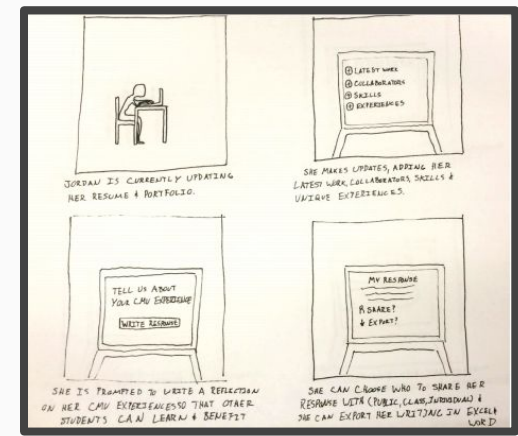 JORDAN IS CURRENTLY UPDATING
HER RESUME & PORTFOLIO.
⊕ LATEST WORK
⊕ COLLABORATORS
⊕ SKILLS
⊕ EXPERIENCES
SHE MAKES UPDATES, ADDING HER
LATEST WORK, COLLABORATORS, SKILLS &
UNIQUE EXPERIENCES.
TELL US ABOUT
YOUR CMU EXPERIENCE
WRITE RESPONSE
SHE IS PROMPTED TO WRITE A REFLECTION
ON HER CMU EXPERIENCES SO THAT OTHER
STUDENTS CAN LEARN & BENEFIT
MY RESPONSE
SHARE?
EXPORT?
SHE CAN CHOOSE WHO TO SHARE HER
RESPONSE WITH (PUBLIC, CLASS, INDIVIDUAL) &
SHE CAN EXPORT HER WRITING IN EXCEL &
WORD